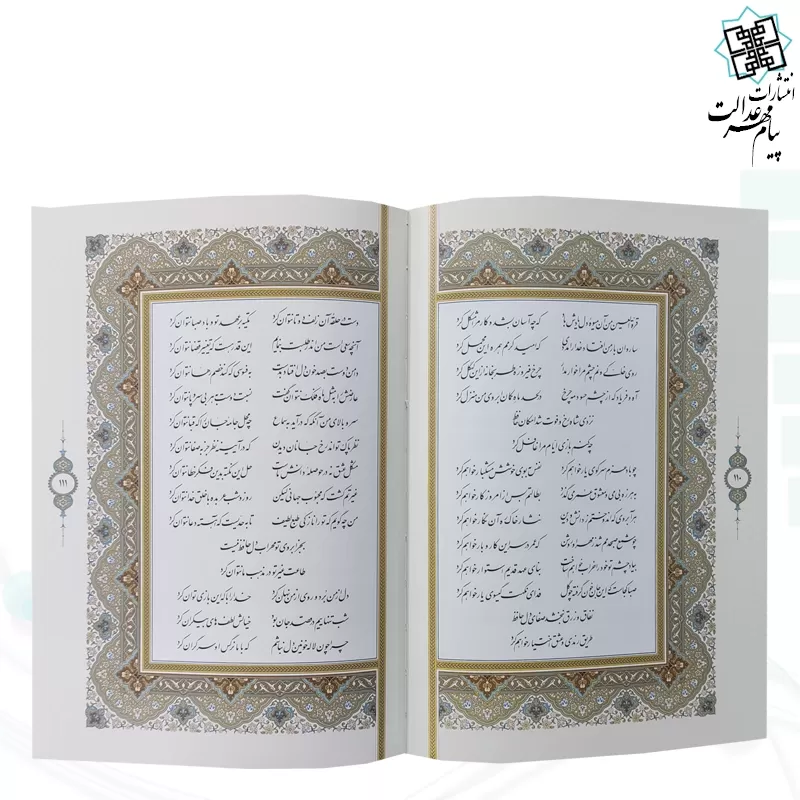 انتشارات
پیام مهر عدالت
قرة‌العین من آن میوه دل یادش باد که چه آسان بشد و کار مرا مشکل کرد
ساروان بار من افتاد خدا را مددی که امید کرمم همره این محمل کرد
روی خاکی و نم چشم مرا خوار مدار چرخ فیروزه طربخانه ازین کهگل کرد
آه و فریاد که از چشم حسود مه چرخ در لحد ماه کمان ابروی من منزل کرد
نزدی شاه رخ و فوت شد امکان حافظ
چکنم بازی ایام مرا غافل کرد
چو باد عزم سر کوی یار خواهم کرد نفس به بوی خوشش مشکبار خواهم کرد
به هرزه بی می و معشوق عمر می گذرد بطالتم بس از امروز کار خواهم کرد
هر آبروی که اندوختم ز دانش و دین نثار خاک ره آن نگار خواهم کرد
چو شمع صبحدمم شد ز مهر او روشن که عمر در سر این کار و بار خواهم کرد
بیاد چشم تو خود را خراب خواهم ساخت بنای عهد قدیم استوار خواهم کرد
صبا کجاست که این جان خون گرفته چو گل فدای نکهت گیسوی یار خواهم کرد
نفاق و زرق نبخشد صفای دل حافظ
طریق رندی و عشق اختیار خواهم کرد
۱۱۰
دست در حلقه آن زلف دوتا نتوان کرد تکیه بر عهد تو و باد صبا نتوان کرد
آنچه سعی است من اندر طلبت بنمایم این قدر هست که تغییر قضا نتوان کرد
دامن دوست بصد خون دل افتاد بدست به فسوسی که کند خصم رها نتوان کرد
عارضش را بمثل ماه فلک نتوان گفت نسبت دوست به هر بی سر و پا نتوان کرد
سرو بالای من آنگه که درآید به سماع چه محل جامه جان را که قبا نتوان کرد
نظر پاک تواند رخ جانان دیدن که در آیینه نظر جز به صفا نتوان کرد
مشکل عشق نه در حوصله دانش ماست حل این نکته بدین فکر خطا نتوان کرد
غیرتم کشت که محبوب جهانی لیکن روز و شب عربده با خلق خدا نتوان کرد
من چه گویم که ترا نازکی طبع لطیف تا به حدیست که آهسته دعا نتوان کرد
بجز ابروی تو محراب دل حافظ نیست
طاعت غیر تو در مذهب ما نتوان کرد
دل از من برد و روی از من نهان کرد خدا را با که این بازی توان کرد
شب تنهاییم در قصد جان بود خیالش لطف های بیکران کرد
چرا چون لاله خونین دل نباشم که با ما نرگس او سرگران کرد
۱۱۱